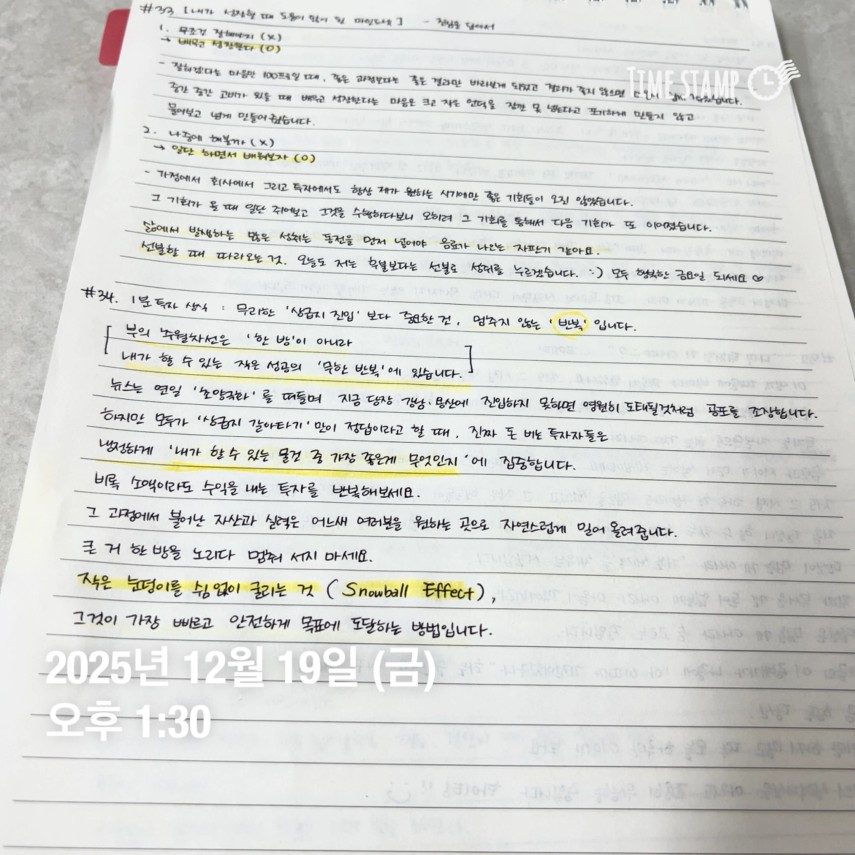 #33 [내가 성장할 때 도움이 많이 된 마인드셋] - 진심을 담아서
1. 무조건 잘해야지 (X)
→ 배우고 성장한다 (O)
- 잘하겠다는 마음만 100프로일 때, 좋은 과정보다는 좋은 결과만 바라보게 되었고 결과가 좋지 않으면
중간 중간 고비가 있을 때 배우고 성장한다는 마음은 크고 작은 언덕을 잠깐 못 넘는다고 포기하게 만들지 않고
물어보고 넘게 만들어줬습니다.
TIME STAMP
2. 나중에 해볼까 (X)
→ 일단 하면서 배워보자 (O)
- 가정에서 회사에서 그리고 투자에서도 항상 제가 원하는 시기에만 좋은 기회들이 오진 않았습니다.
그 기회가 올 때 일단 쥐어보고 그것을 수행하다보니 오히려 그 기회를 통해서 다음 기회가 또 이어졌습니다.
삶에서 발생하는 많은 성취는 동전을 먼저 넣어야 음료가 나오는 자판기 같아요.
선불할 때 따라오는 것. 오늘도 저는 후불보다는 선불로 성취를 누르겠습니다. :) 모두 행복한 금요일 되세요 ♡
#34. 1분 투자 상식 : 무리한 '상급지 진입' 보다 중요한 건, 멈추지 않는 '반복' 입니다.
[ 부의 추월차선은 '한 방'이 아니라
내가 할 수 있는 작은 성공의 '무한 반복'에 있습니다. ]
뉴스는 연일 '초양극화'를 떠들며 지금 당장 강남·용산에 진입하지 못하면 영원히 도태될것처럼 공포를 조장합니다.
하지만 모두가 '상급지 갈아타기'만이 정답이라고 할 때, 진짜 돈 버는 투자자들은
냉정하게 '내가 할 수 있는 물건 중 가장 좋은게 무엇인지'에 집중합니다.
비록 소액이라도 수익을 내는 투자를 반복해보세요.
그 과정에서 불어난 자산과 실력은 어느새 여러분을 원하는 곳으로 자연스럽게 밀어 올려줍니다.
큰 거 한 방을 노리다 멈춰 서지 마세요.
작은 눈덩이를 쉼없이 굴리는 것 (Snowball Effect),
그것이 가장 빠르고 안전하게 목표에 도달하는 방법입니다.
2025년 12월 19일 (금)
오후 1:30